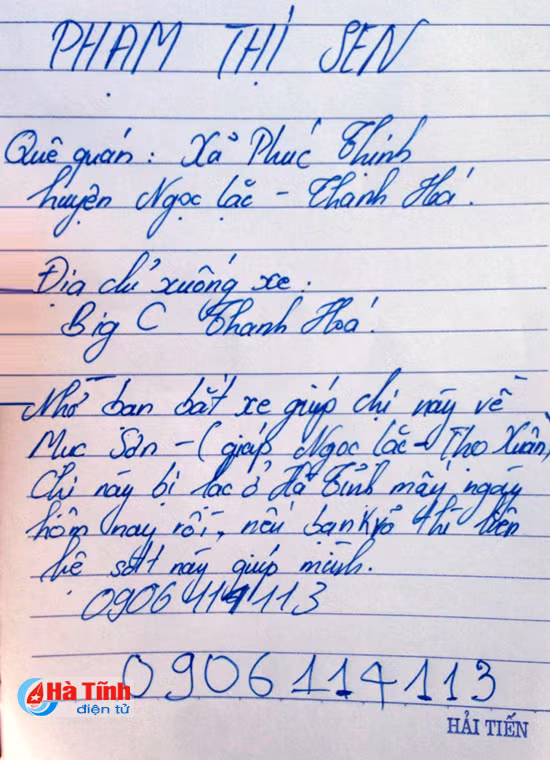 PHẠM THỊ SEN
Quê quán: Xã Phúc Thịnh
huyện Ngọc Lặc - Thanh Hoá.
Địa chỉ xuống xe:
Big C Thanh Hoá.
Nhờ bạn bắt xe giúp chị này về
Mục Sơn - (giáp Ngọc Lặc - Thọ Xuân)
Chị này bị lạc ở Hà Tĩnh mấy ngày
hôm nay rồi, nếu bạn rõ thì liên
hệ sđt này giúp mình.
0906114113
0906114113
Hà Tĩnh
điện tử
HẢI TIẾN